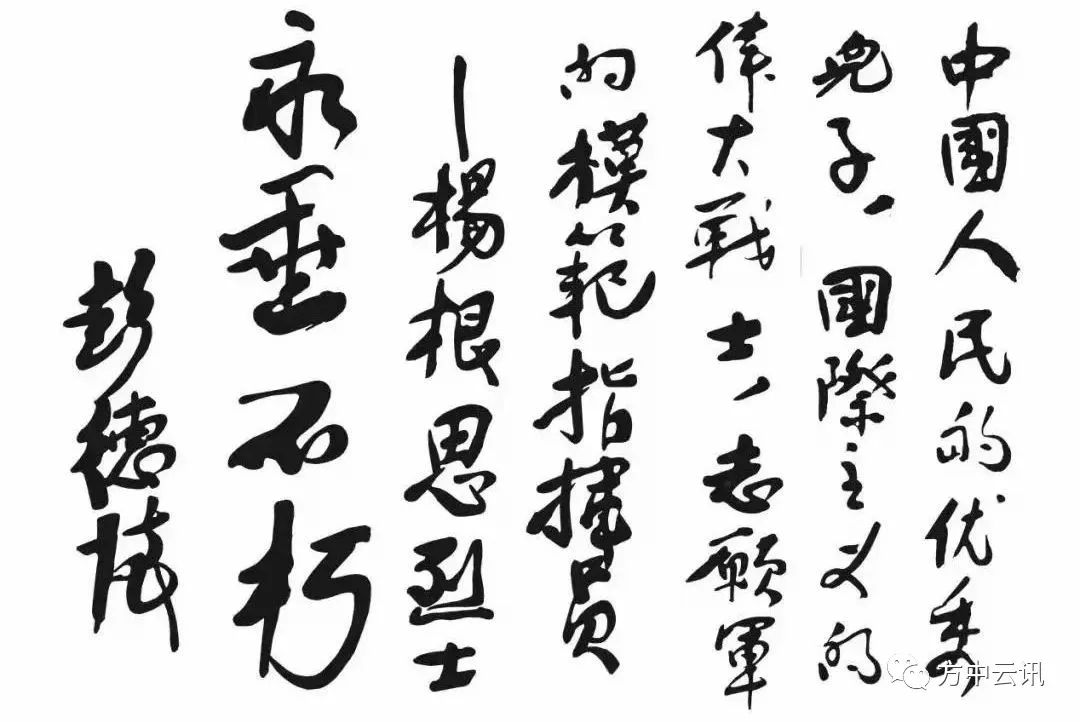 中國人民的优秀
兒子、國際主义的
偉大战士、志愿軍
的模範指揮員
—楊根思烈士
永垂不朽
彭德怀
方中云讯